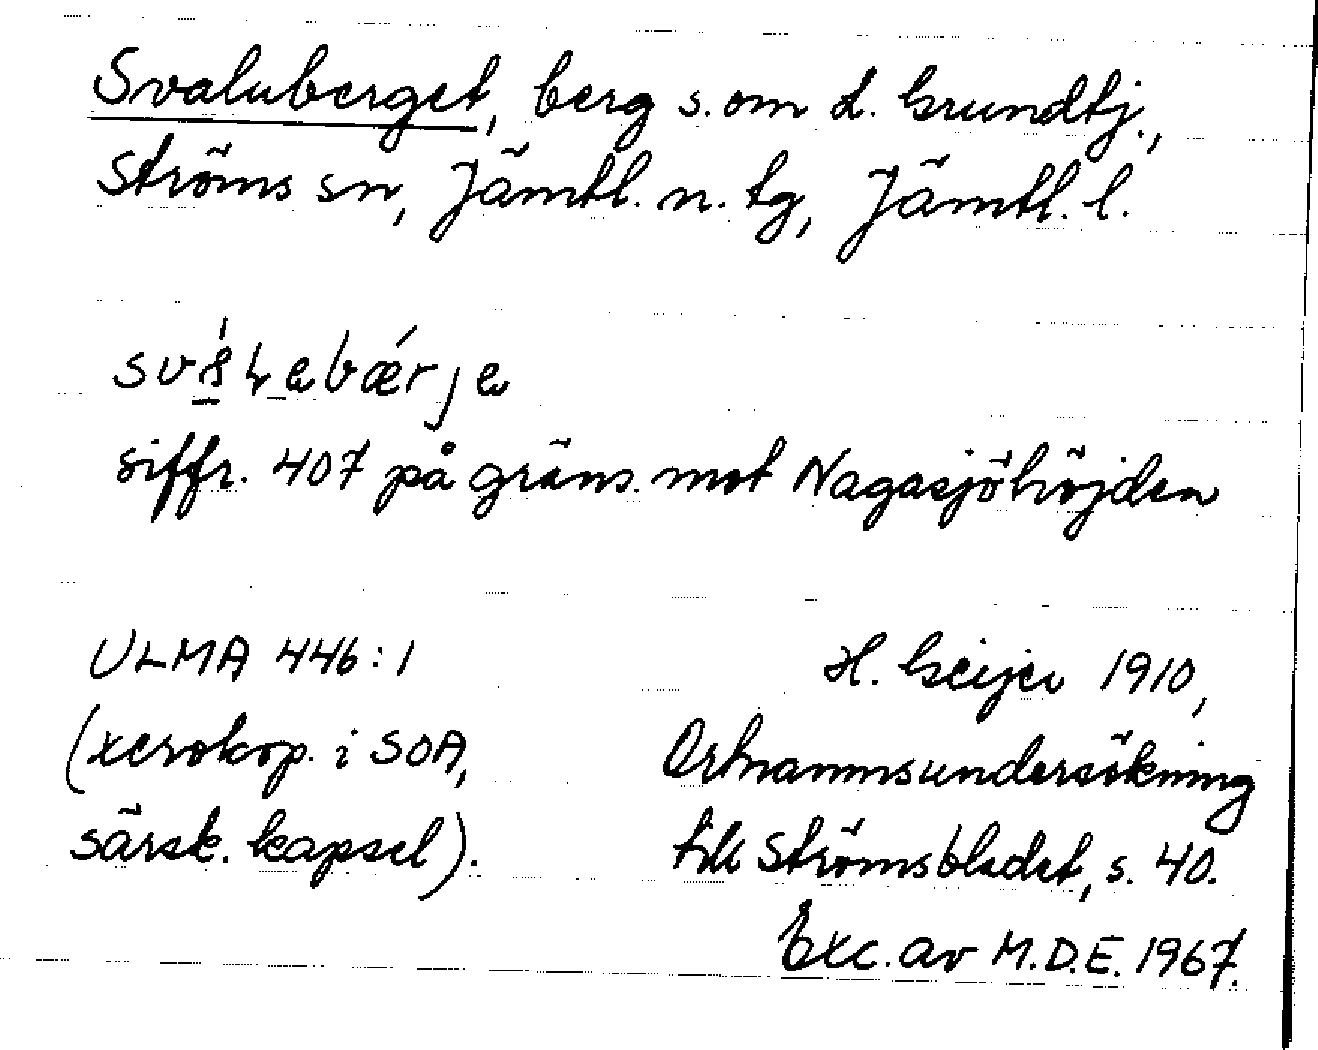 Svaluberget, berg s. om L. Grundtj.,
Ströms sn, Jämtl. n. tg, Jämtl. l.
siffr. 407 på gräns. mot Nagasjöhöjden
ULMA 446:1
(xerokop. i SOA,
särsk. kapsel).
H. Geijer 1910,
Ortnamnsundersökning
till Strömsbladet, s. 40.
Exc. av M.D.E. 1967.